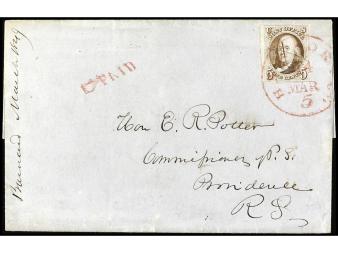 Barnard March 1849
PAID
POST OFFICE
5
MAR
5
Hon E. R. Potter
Commissioner P. S.
Providence
R. I.